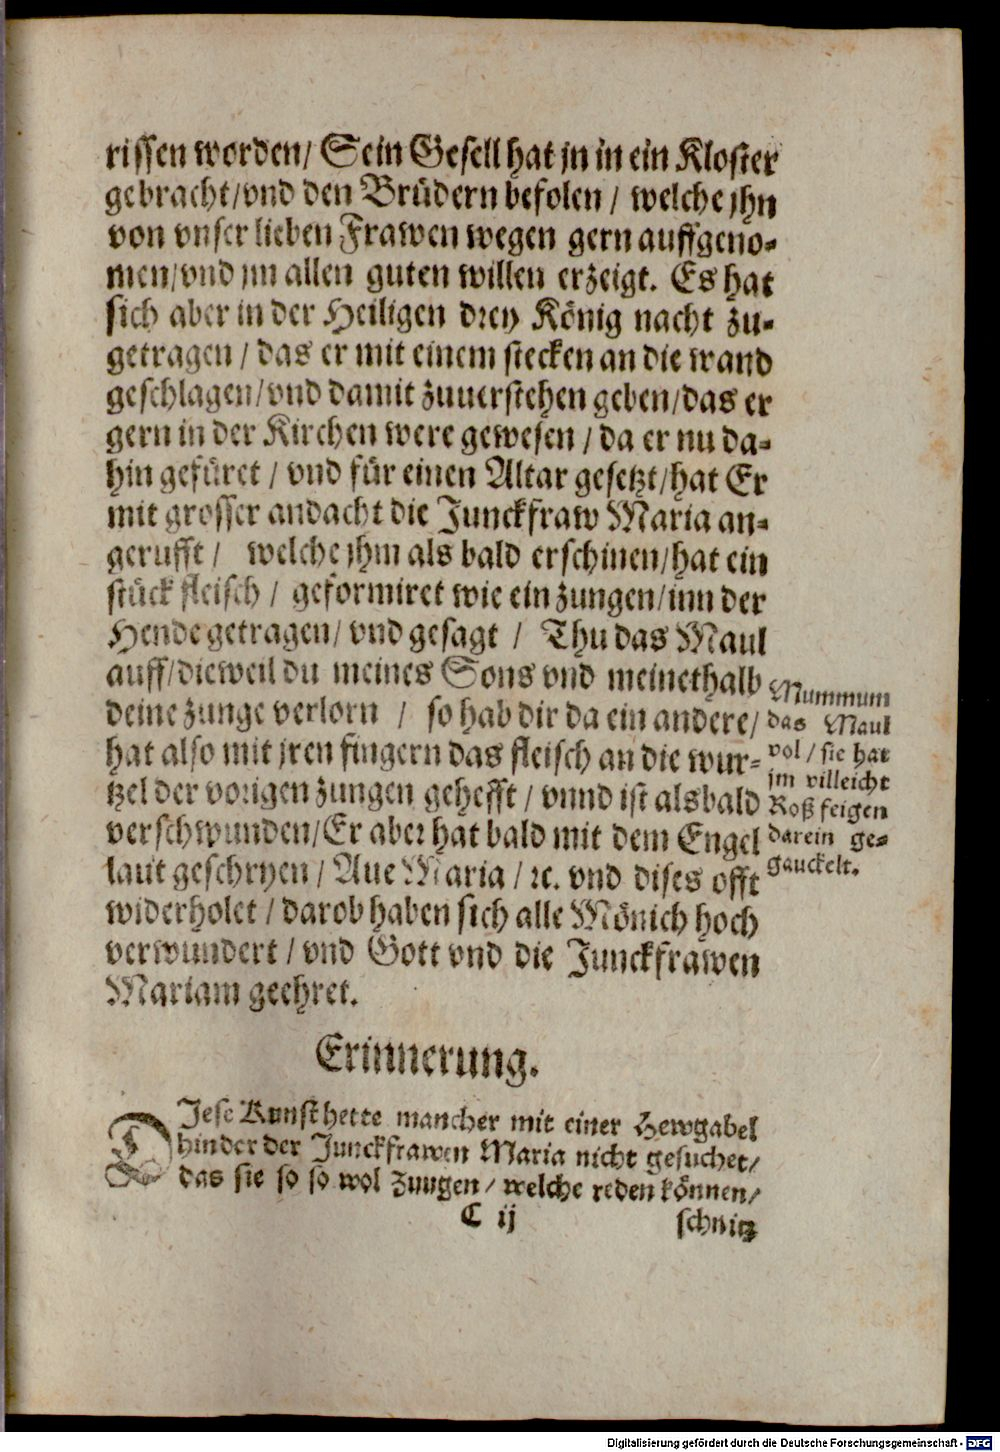 rissen worden/ Sein Gesell hat jn in ein Kloster
gebracht/vnd den Brüdern befolen / welche jhn
von vnser lieben Frawen wegen gern auffgeno-
men/vnd jm allen guten willen erzeigt. Es hat
sich aber in der Heiligen drey König nacht zu-
getragen / das er mit einem stecken an die wand
geschlagen/vnd damit zuuerstehen geben/das er
gern in der Kirchen were gewesen / da er nu da-
hin gefüret / vnd für einen Altar gesetzt/hat Er
mit grosser andacht die Junckfraw Maria an-
gerufft / welche jhm als bald erschinen/hat ein
stück fleisch / geformiret wie ein zungen/inn der
Hende getragen/ vnd gesagt / Thu das Maul
auff/dieweil du meines Sons vnd meinethalb
deine zunge verlorn / so hab dir da ein andere/
hat also mit jren fingern das fleisch an die wur-
tzel der vorigen zungen gehefft / vnnd ist alsbald
verschwunden/Er aber hat bald mit dem Engel
laut geschryen / Aue Maria / ꝛc. vnd dises offt
widerholet / darob haben sich alle Mönich hoch
verwundert / vnd Gott vnd die Junckfrawen
Mariam geehret.
Mummum
das Maul
vol / sie hat
jm villeicht
Roß feigen
darein ge-
gauckelt.
Erinnerung.
DJese Kunst hette mancher mit einer Hewgabel
hinder der Junckfrawen Maria nicht gesuchet/
das sie so so wol Zungen / welche reden können/
C ij
schnitz
Digitalisierung gefördert durch die Deutsche Forschungsgemeinschaft - DFG